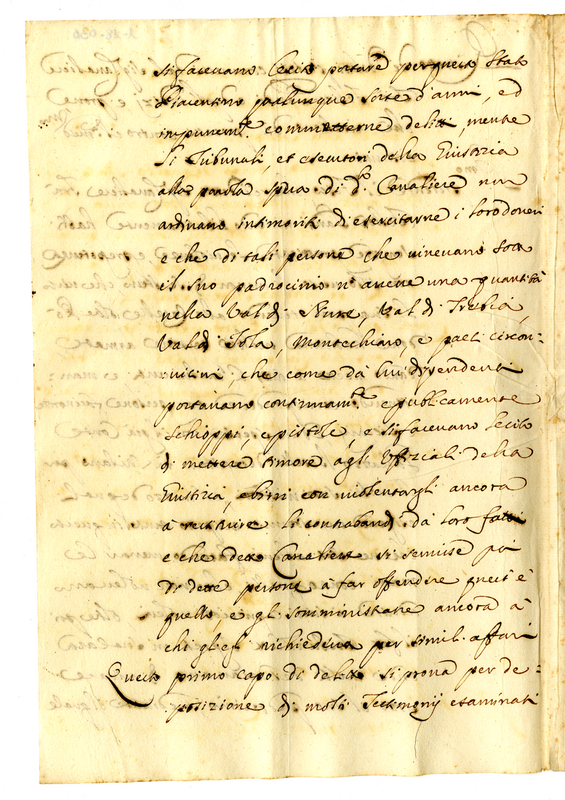 si facevano lecito portare per questo Stato
Piacentino qualunque sorte d'armi, ed
impunem.te commetterne delitti, mentre
li Tribunali, et esecutori della Giustizia
alla parola sua di d.o Cavaliere non
ardivano intimoriti di esercitarne i loro doveri
e che di tali persone che vivevano sotto
il suo padrocinio n'avene una quantità
nella Val di Nure, Val di Trebia,
Val di Tola, Montechiaro, e paesi circon-
vicini, che come da lui dipendenti
portavano continuam.te e publicamente
schioppi, e pistole, e si facevano lecito
di mettere timore agli Offiziali della
Giustizia, e birri con violentargli ancora
a restituire li contrabandi da loro fatti
e che detto Cavaliere si servisse poi
di dette persone a far offendere questi e
quello, e gli somministrare ancora a
chi gliegli richiedeva per simili affari
Questo primo capo di delitto si prova per de-
posizione di molti Testimonij esaminati